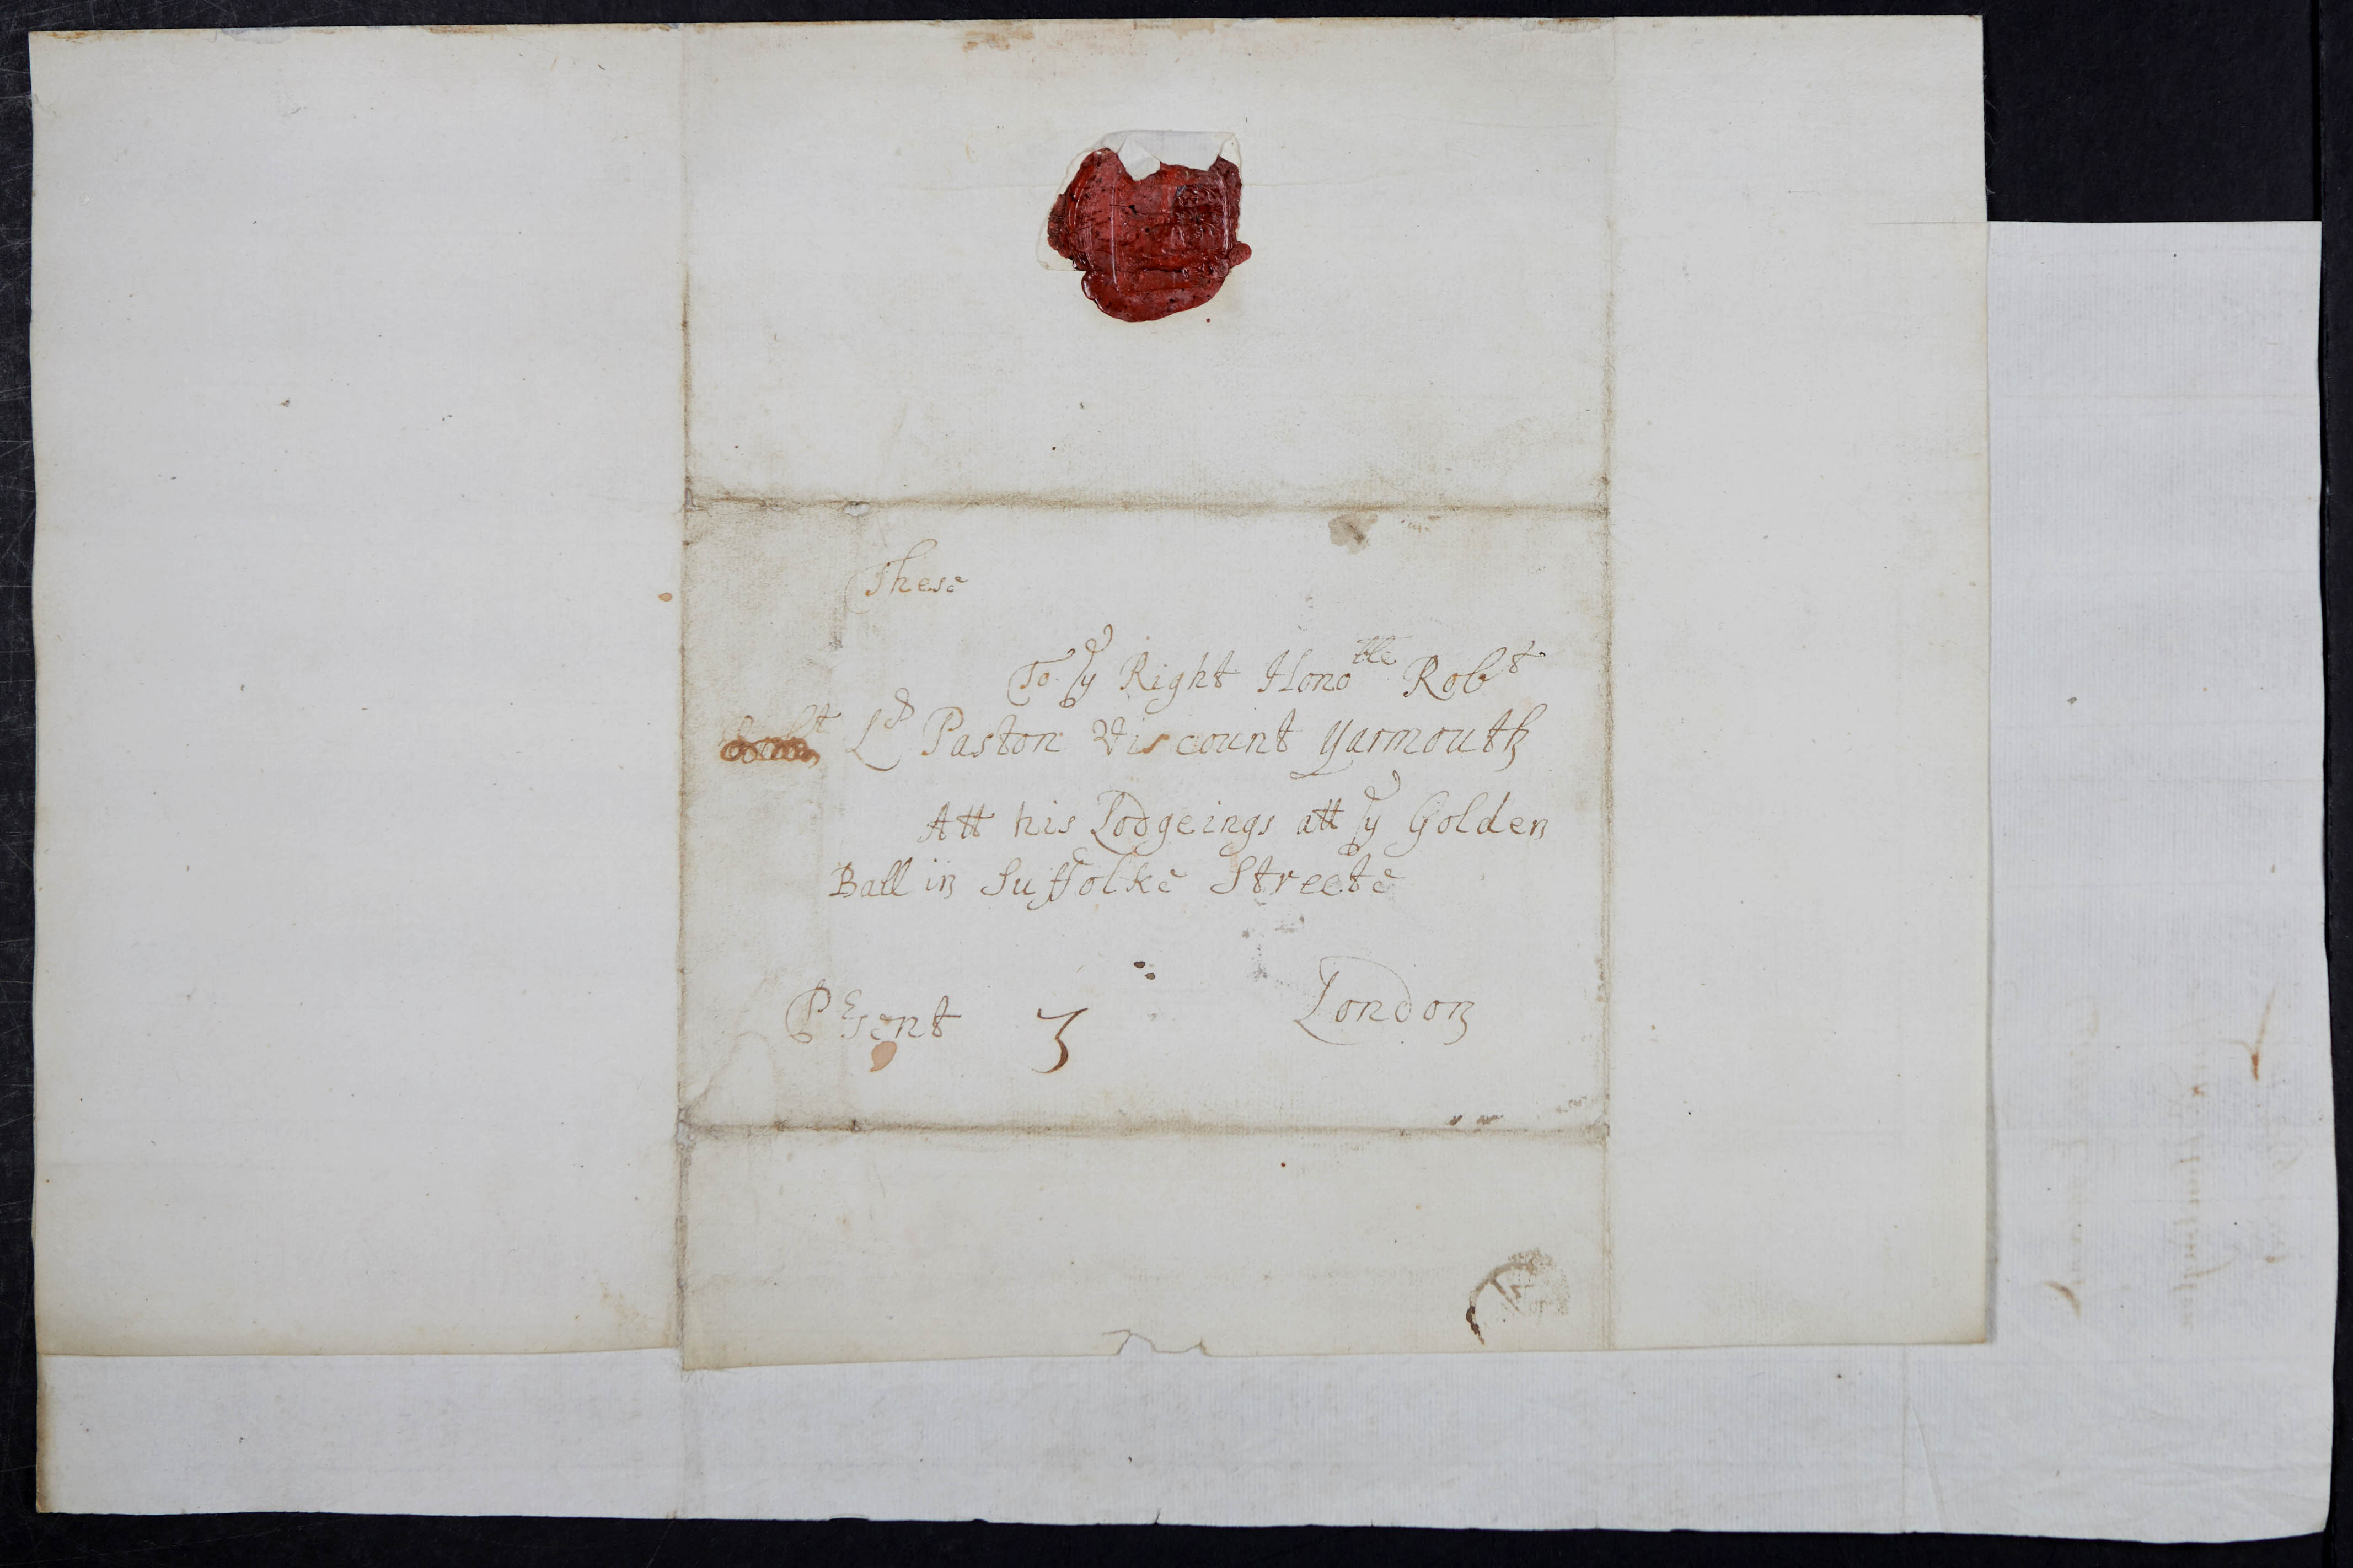 These
To ye Right Hono:ble Robt
Ld Paston Viscount Yarmouth
Att his Lodgeings att ye Golden
Ball in Suffolke Streete
Present 3 London